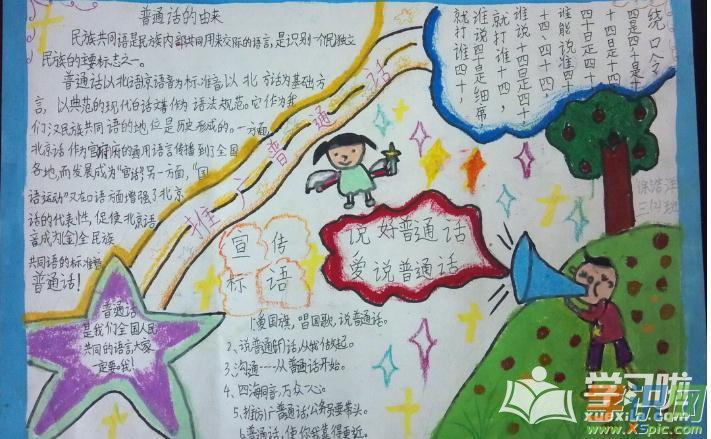 普通话的由来
民族共同语是民族内部共同用来交际的语言,是识别一个民独立
民族的主要标志之一。
普通话以北语京语音为标准音,以北京话为基础方
言,以典范的现代白话
语法规范。它作为我
们汉民族共同语的地位是历史形成的。一方面,
北京话作为官府的通用语言传播到了全国
各地,而发展成为“官
另一方面,“国
语运动”又在口语方面增强了北京
话的代表性,促使北京语
音成为全民族
共同语的标准音
普通话!
推广普通话
绕口令
四是四,十是十,
十四是十四,
四十是四十,
谁能说准
四十、十四,
谁说十四是四十
就打谁十四,
谁说四十是细席,
就打谁四十,
三(2)班
说好普通话
爱说普通话
宣传
标语
普通话
是我们全国人民
共同的语言大家
一定要哦!
1、爱国旗,唱国歌,说普通话。
2、说普通的话从我做起。
3、沟通——从普通话开始。
4、四海同音,万众一心。
5、推广普通话公务员要带头。
6、普通话,使你我靠得更近。
学习啦
xuexila.com
www.XSpic.com